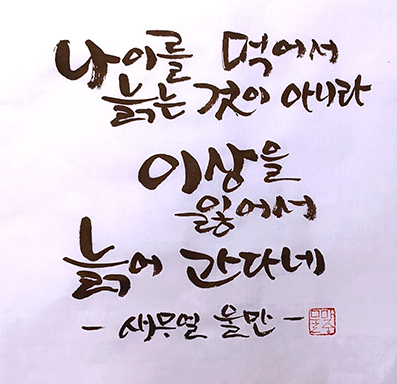 나이를 먹어서
늙는 것이 아니라
이상을
잃어서
늙어 간다네
- 새무얼 울만 -